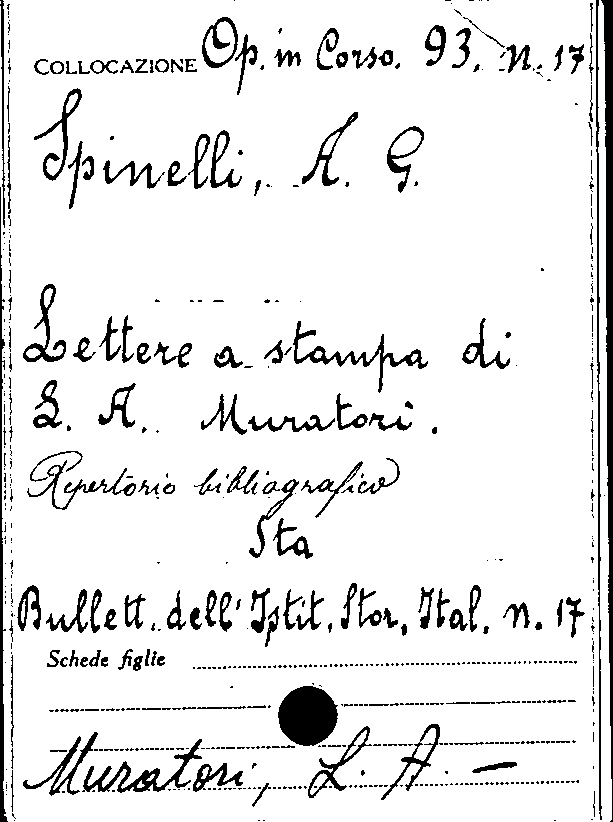 COLLOCAZIONE Op. in Corso. 93. n. 17
Spinelli, A. G.
Lettere a stampa di
L. A. Muratori.
Repertorio bibliografico
Sta
Bullett. dell' Istit. Stor. Ital. n. 17
Schede figlie
Muratori, L. A. —